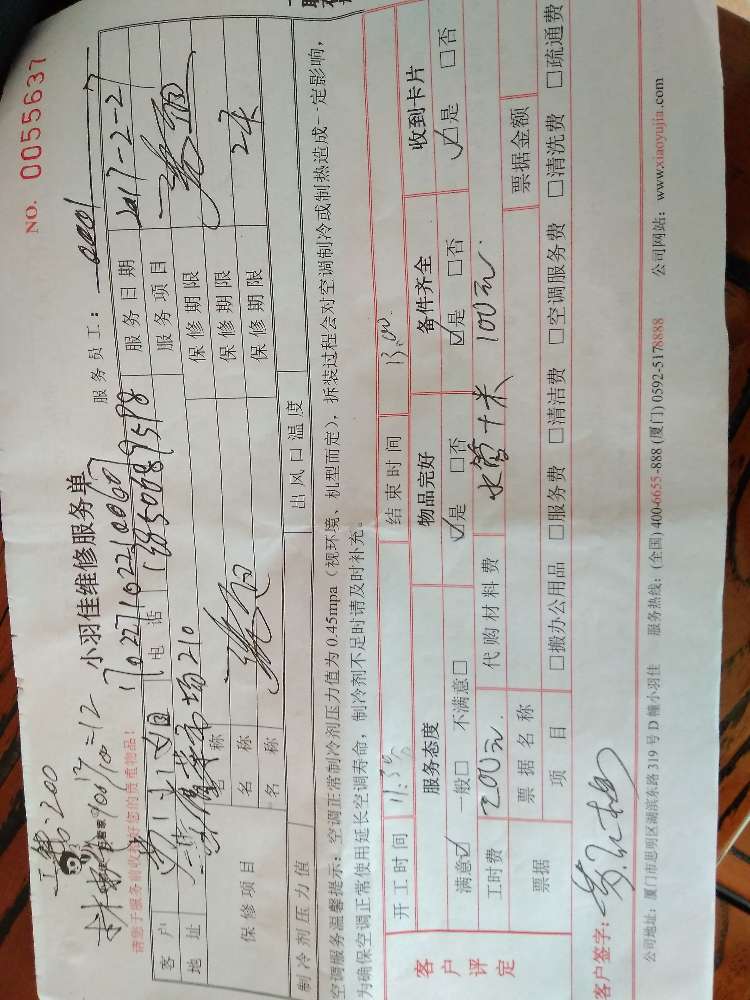 NO. 0055637
小羽佳维修服务单
服务员工：0001
请您于服务前收好您的贵重物品！
客户
电话
服务日期 2017-2-27
地址
服务项目
保修项目
名称
保修期限
名称
保修期限
名称
保修期限 2天
制冷剂压力值
出风口温度
空调服务温馨提示：空调正常制冷剂压力值为0.45mpa（视环境、机型而定），拆装过程会对空调制冷或制热造成一定影响，
为确保空调正常使用延长空调寿命，制冷剂不足时请及时补充。
开工时间 11:30
结束时间 13:00
客户评定
服务态度
物品完好
备件齐全
收到卡片
满意☑ 一般□ 不满意□
☑是 □否
☑是 □否
☑是 □否
工时费 200元
代购材料费 水管十米 100元
票据
票据名称
票据金额
项目
□搬办公用品 □服务费 □清洁费 □空调服务费 □清洗费 □疏通费
客户签字：
公司地址：厦门市思明区湖滨东路319号D幢小羽佳 服务热线：(全国) 400-6655-888 (厦门) 0592-5178888 公司网站：www.xiaoyujia.com